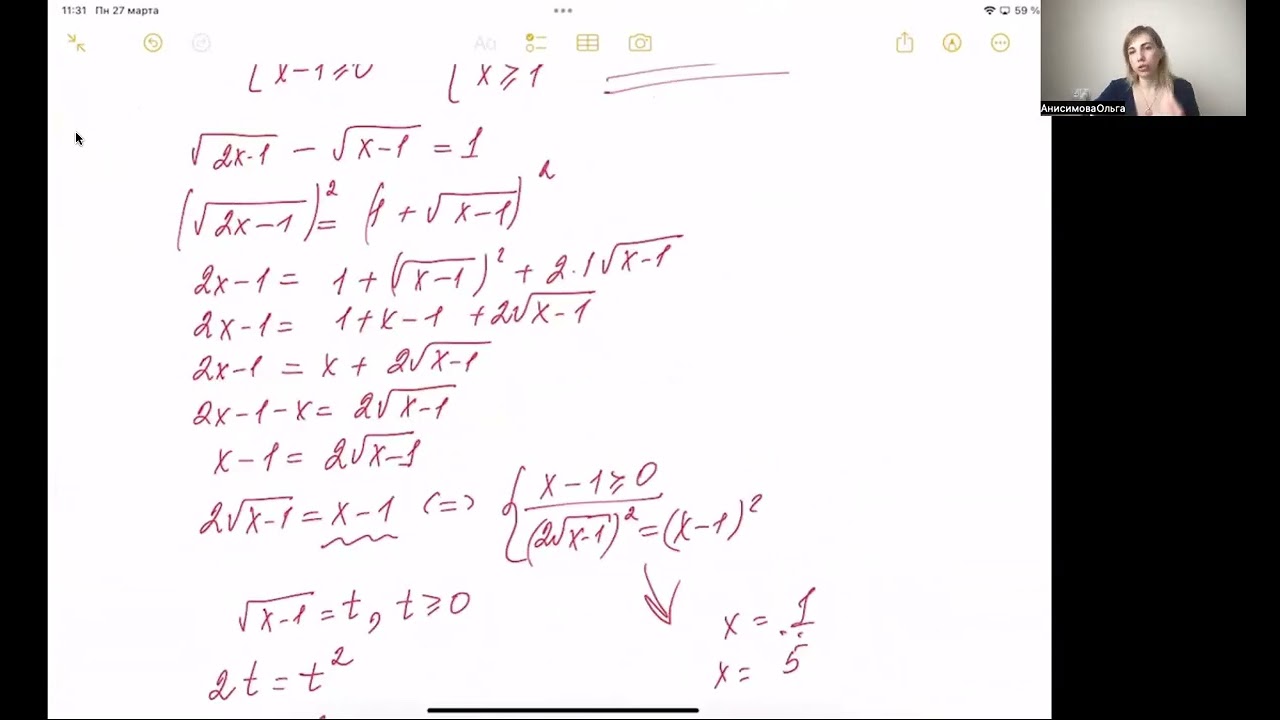 11:31 Пн 27 марта
59 %
Aa
x-1≥0 x≥1
АнисимоваОльга
√2x-1 - √x-1 = 1
(√2x-1)² = (1 + √x-1)²
2x-1 = 1 + (√x-1)² + 2·1√x-1
2x-1 = 1+x-1 +2√x-1
2x-1 = x + 2√x-1
2x-1-x = 2√x-1
x-1 = 2√x-1
2√x-1 = x-1 (=) { x-1≥0
(2√x-1)² = (x-1)²
√x-1 = t, t≥0
x = 1
2t = t²
x = 5